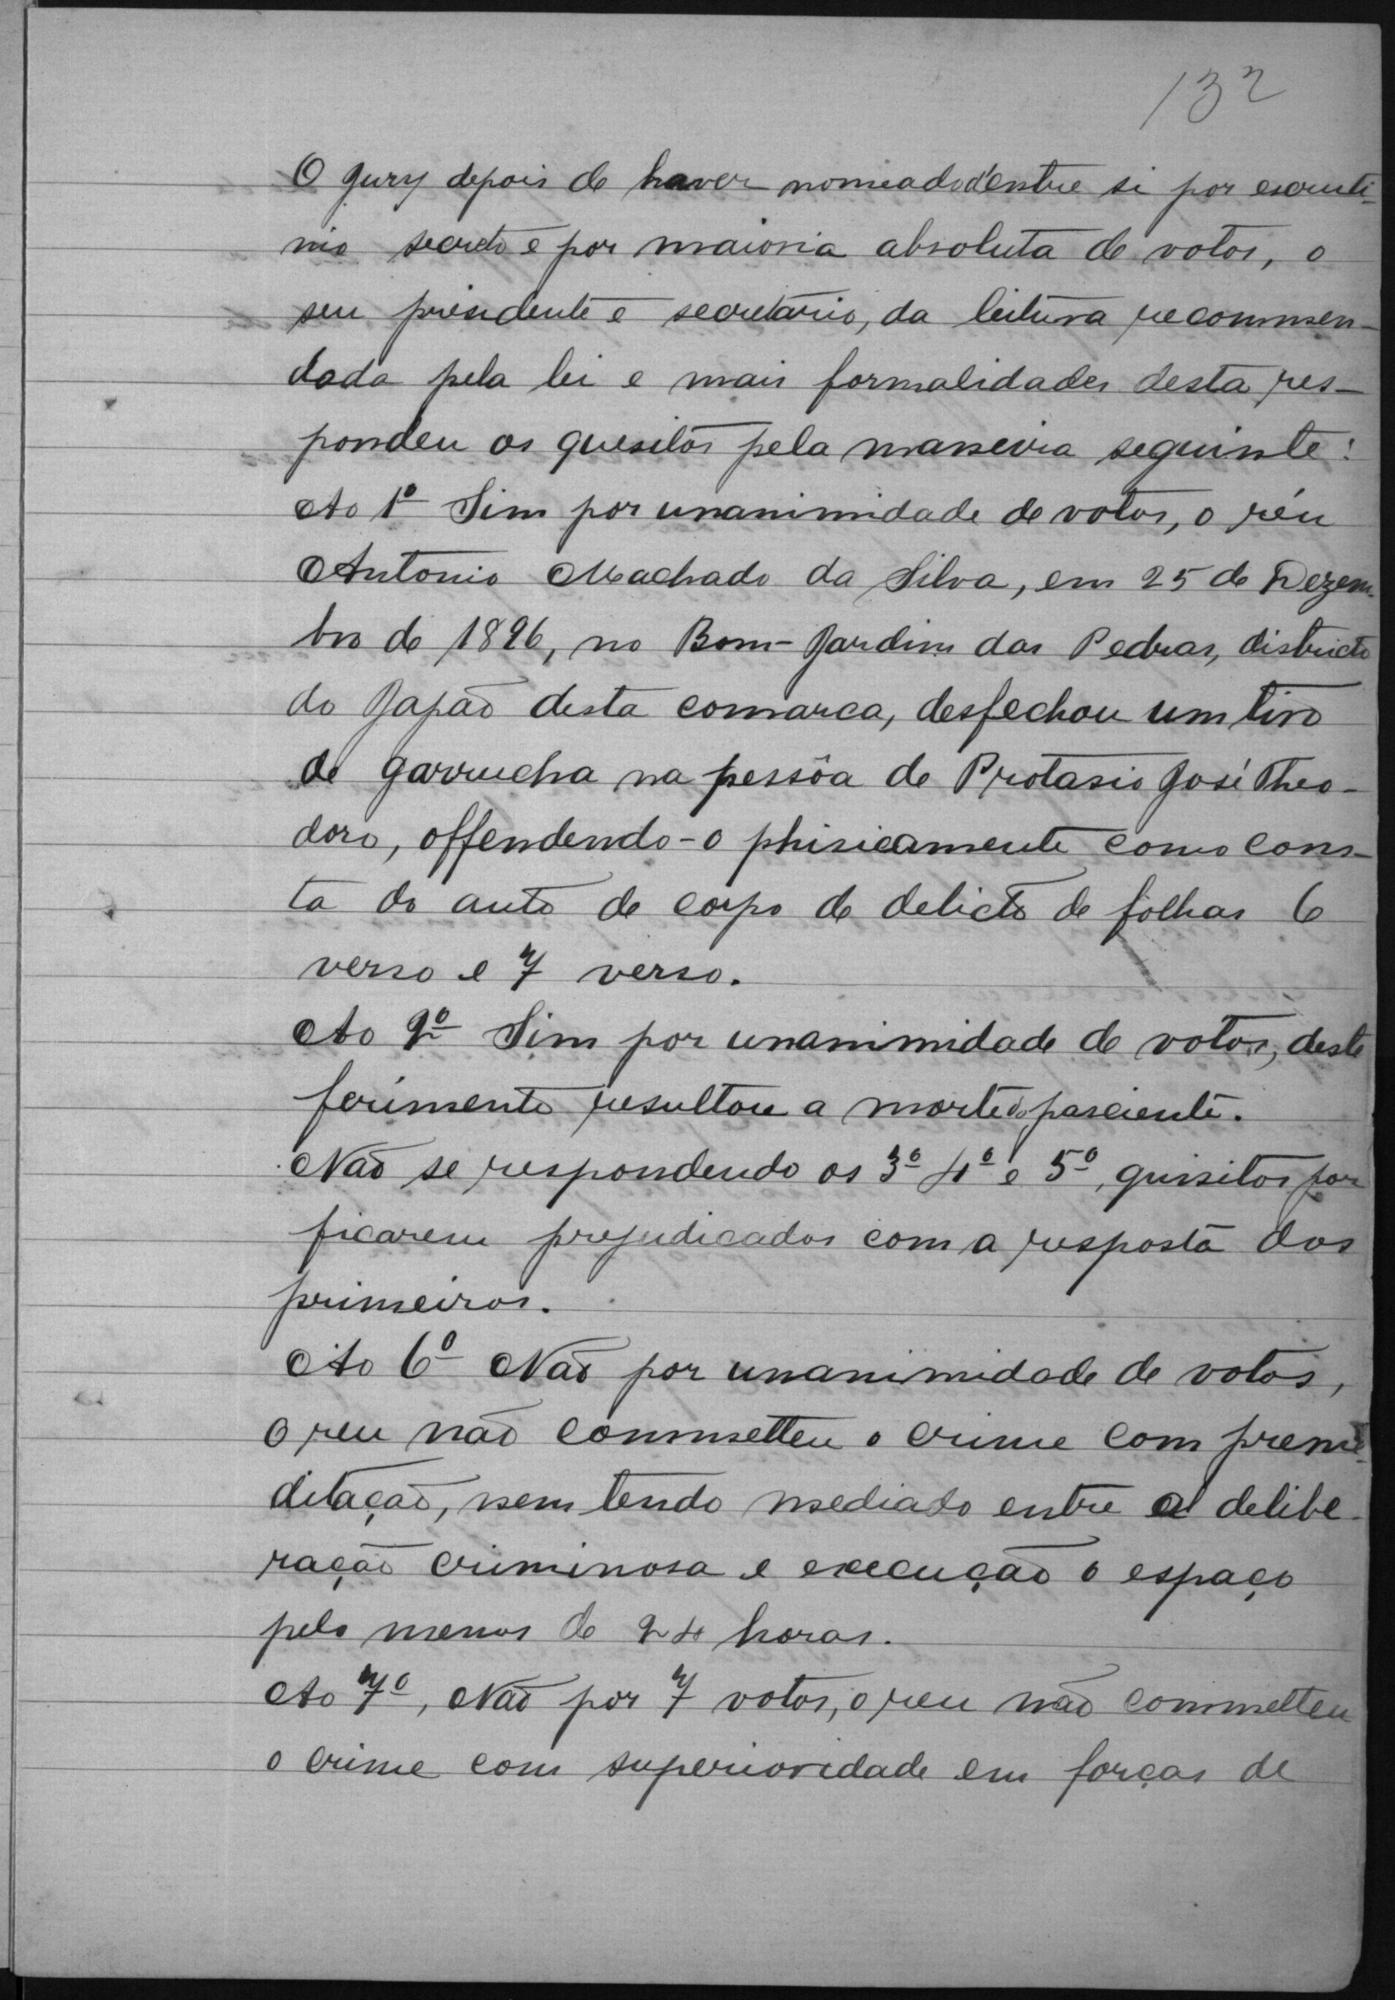 132
O jury depois de haver nomeado d'entre si por escruti-
nio secreto e por maioria absoluta de votos, o
seu presidente e secretario, da leitura recommen-
dada pela lei e mais formalidades desta res-
pondeu os quesitos pela maneira seguinte:
Ao 1º Sim por unanimidade de votos, o réu
Antonio Machado da Silva, em 25 de Dezem-
bro de 1896, no Bom-Jardim das Pedras, districto
do Japão desta comarca, desfechou um tiro
de garrucha na pessôa de Protasio José Theo-
doro, offendendo-o phisicamente como cons-
ta do auto de corpo de delicto de folhas 6
verso e 7 verso.
Ao 2º Sim por unanimidade de votos, deste
ferimento resultou a morte do pasciente.
Não se respondendo os 3º 4º e 5º, quisitos por
ficarem prejudicados com a resposta dos
primeiros.
Ao 6º Não por unanimidade de votos,
o reu não commetteu o crime com preme-
ditação, nem tendo mediado entre a delibe-
ração criminosa e execução o espaço
pelo menos de 24 horas.
Ao 7º, Não por 7 votos, o reu não commetteu
o crime com superioridade em forças de